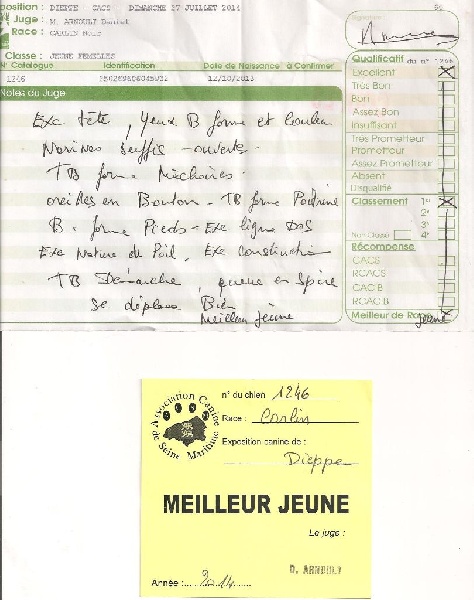 position : DIEPPE CACS DIMANCHE 27 JUILLET 2014
Juge : M. ARNOULT Daniel
Race : CARLIN Noir
Classe : JEUNE FEMELLES
N° Catalogue Identification Date de Naissance à Confirmer
1246 12/10/2013
Notes du Juge
Exc tête, yeux B forme et couleur
Narines suffis - ouvertes -
TB forme Mâchoires -
oreilles en Bouton - TB forme Poitrine
B. forme Pieds - Exc ligne Dos
Exc Nature du Poil, Exc construction
TB Démarche, queue en Spire
se déplace Bien
Meilleur Jeune
Signature
Qualificatif du n° 1246
Excellent
Très Bon
Bon
Assez Bon
Insuffisant
Très Prometteur
Prometteur
Assez Prometteur
Absent
Disqualifié
Classement 1er
2e
3e
Non Classé 4e
Récompense
CACS
RCACS
CAC B
RCAC B
Meilleur de Race
jeune
Association Canine de Seine Maritime
n° du chien 1246
Race : Carlin
Exposition canine de :
Dieppe
MEILLEUR JEUNE
Le juge :
D. ARNOULT
Année : 2014